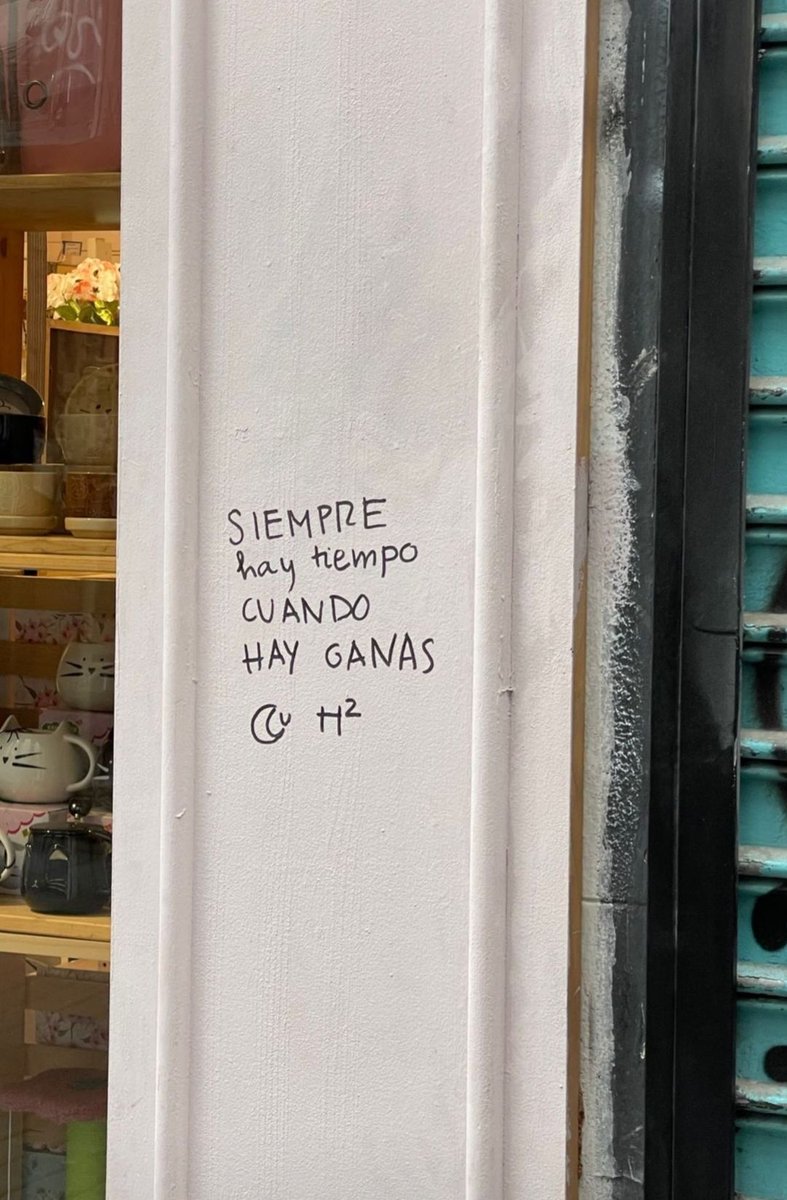 SIEMPRE
hay tiempo
CUANDO
HAY GANAS
H²